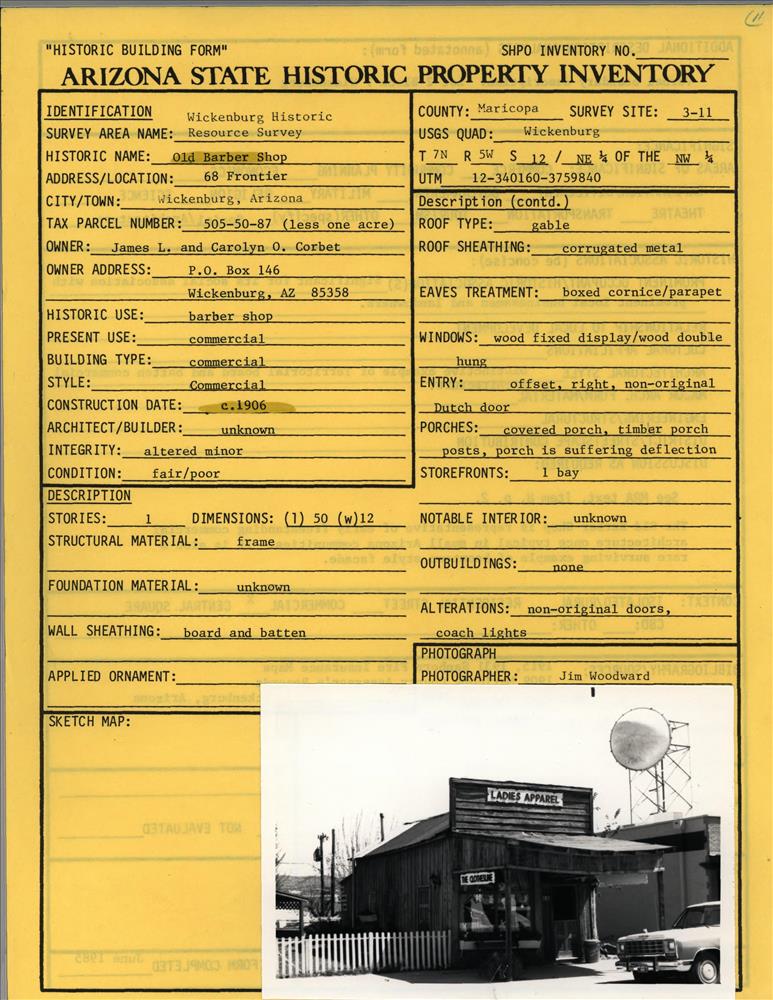 11
"HISTORIC BUILDING FORM"
SHPO INVENTORY NO.
ARIZONA STATE HISTORIC PROPERTY INVENTORY
IDENTIFICATION
SURVEY AREA NAME: Wickenburg Historic
Resource Survey
HISTORIC NAME: Old Barber Shop
ADDRESS/LOCATION: 68 Frontier
CITY/TOWN: Wickenburg, Arizona
TAX PARCEL NUMBER: 505-50-87 (less one acre)
OWNER: James L. and Carolyn O. Corbet
OWNER ADDRESS: P.O. Box 146
Wickenburg, AZ 85358
HISTORIC USE: barber shop
PRESENT USE: commercial
BUILDING TYPE: commercial
STYLE: Commercial
CONSTRUCTION DATE: c.1906
ARCHITECT/BUILDER: unknown
INTEGRITY: altered minor
CONDITION: fair/poor
COUNTY: Maricopa SURVEY SITE: 3-11
USGS QUAD: Wickenburg
T 7N R 5W S 12 / NE ¼ OF THE NW ¼
UTM 12-340160-3759840
Description (contd.)
ROOF TYPE: gable
ROOF SHEATHING: corrugated metal
EAVES TREATMENT: boxed cornice/parapet
WINDOWS: wood fixed display/wood double
hung
ENTRY: offset, right, non-original
Dutch door
PORCHES: covered porch, timber porch
posts, porch is suffering deflection
STOREFRONTS: 1 bay
DESCRIPTION
STORIES: 1 DIMENSIONS: (l) 50 (w)12
STRUCTURAL MATERIAL: frame
FOUNDATION MATERIAL: unknown
WALL SHEATHING: board and batten
APPLIED ORNAMENT:
NOTABLE INTERIOR: unknown
OUTBUILDINGS: none
ALTERATIONS: non-original doors,
coach lights
PHOTOGRAPH
PHOTOGRAPHER: Jim Woodward
SKETCH MAP:
LADIES APPAREL
THE CLOTHESLINE